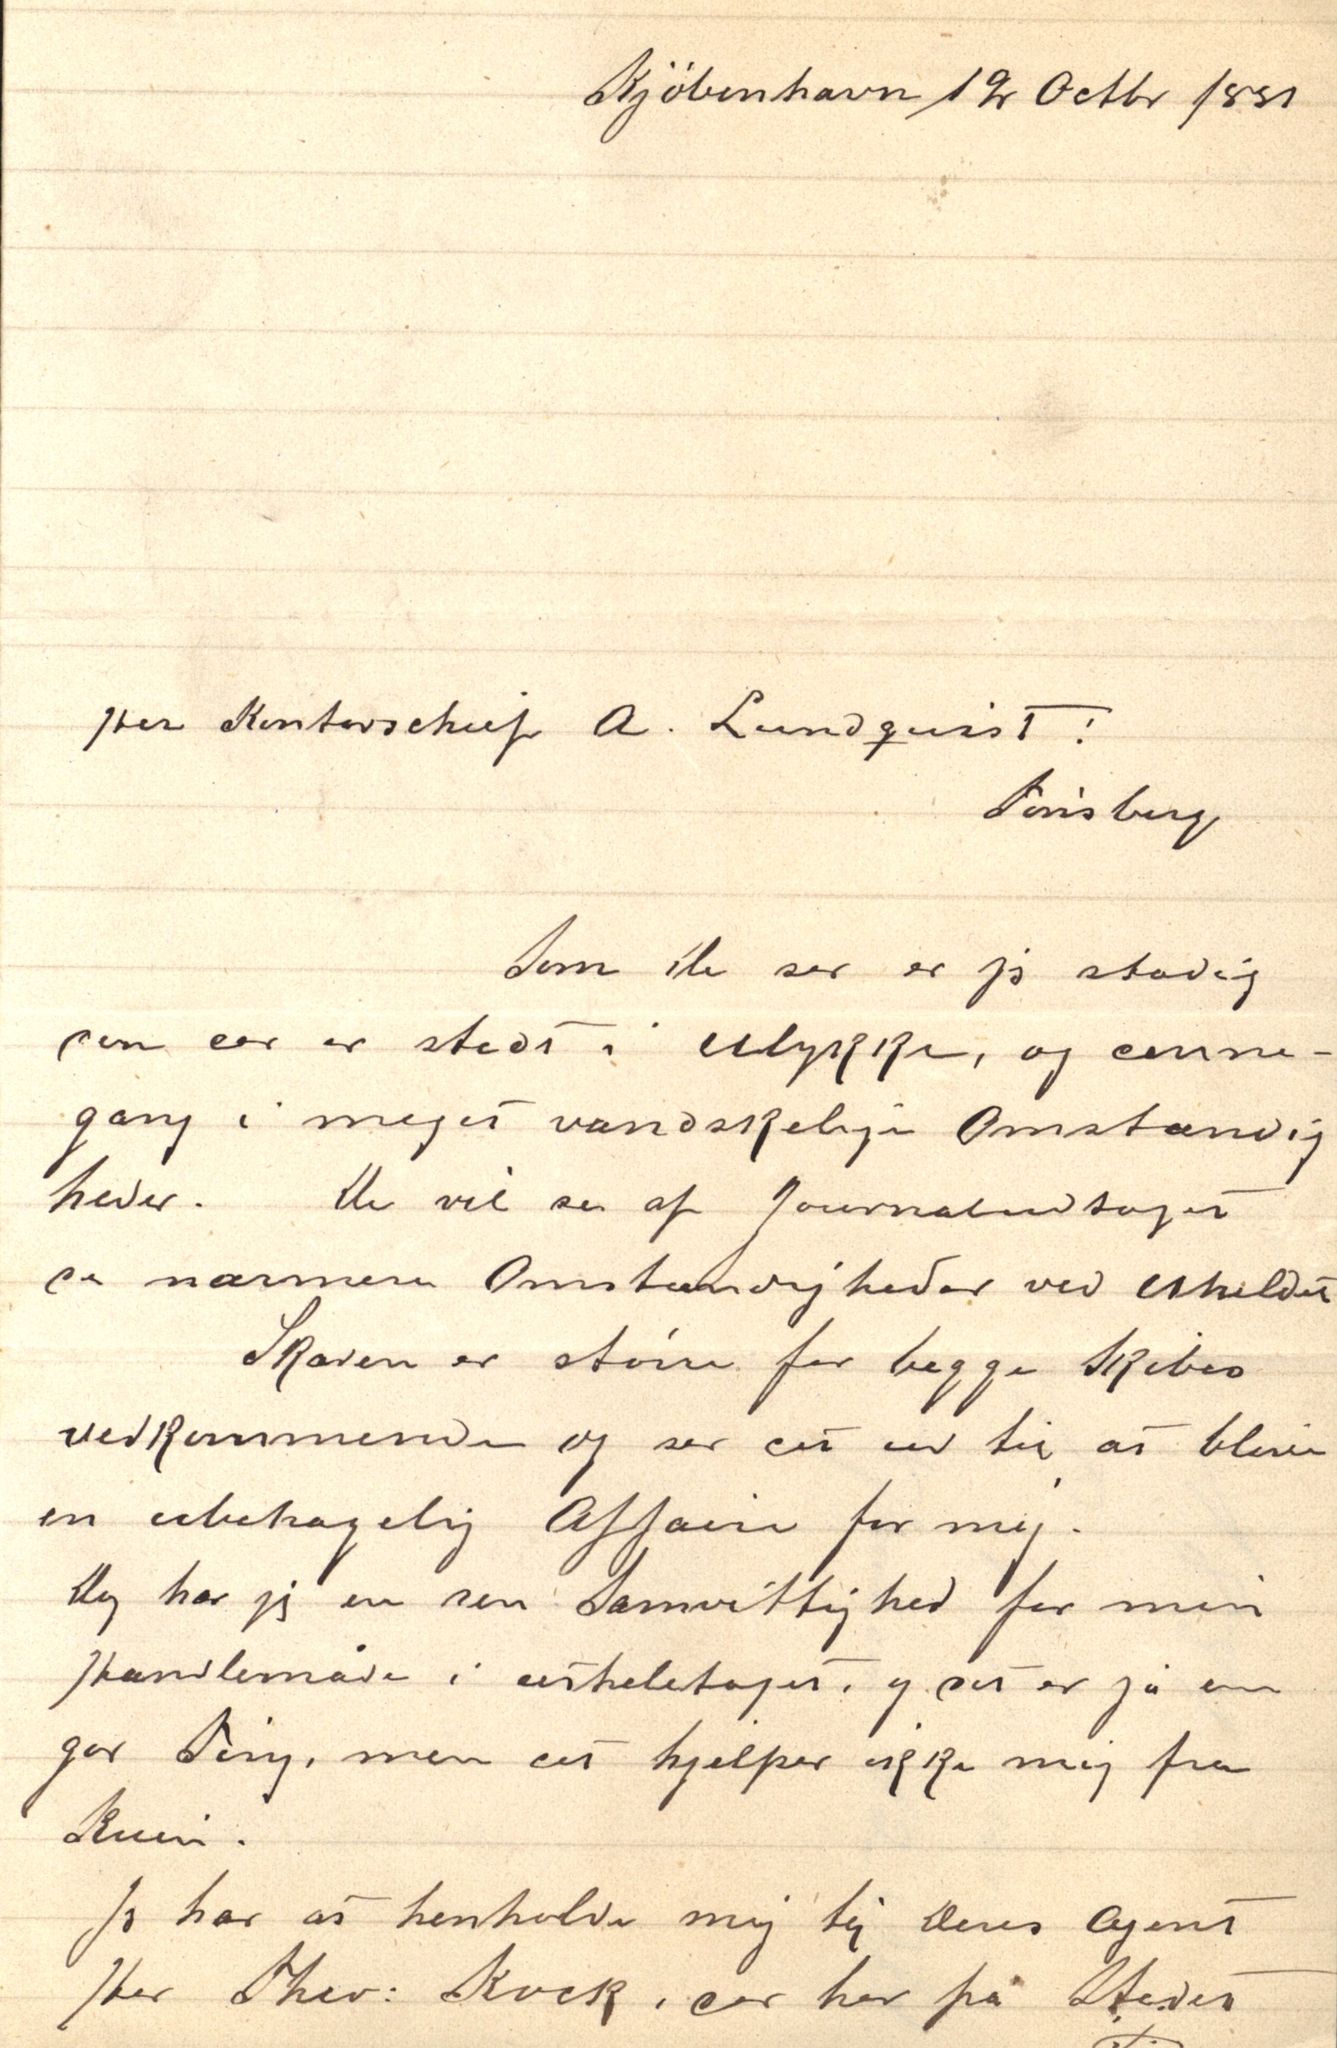 Kjöbenhavn 12 Octbr 1881
Her Kontorschef A. Lundquist!
Tönsberg
Som De ser er jg stadig
den der er stedt i Ulykke, og denne-
gang i meget vandskelige Omstændig
heder. De vil se af Journaludtoget
de nærmere Omstændigheder ved Uheldet
Skaden er större for begge Skibes
vedkommende og ser det ud til at blive
en ubehagelig Affaire for mig.
Dog har jg en ren Samvittighed for min
Handlemåde i det heletaget, og det er jo en
god Ting, men det hjelper ikke mig fra
Ruin.
Jg har at henholde mig til Deres Agent
Her Theo: Kock, der her på Stedet